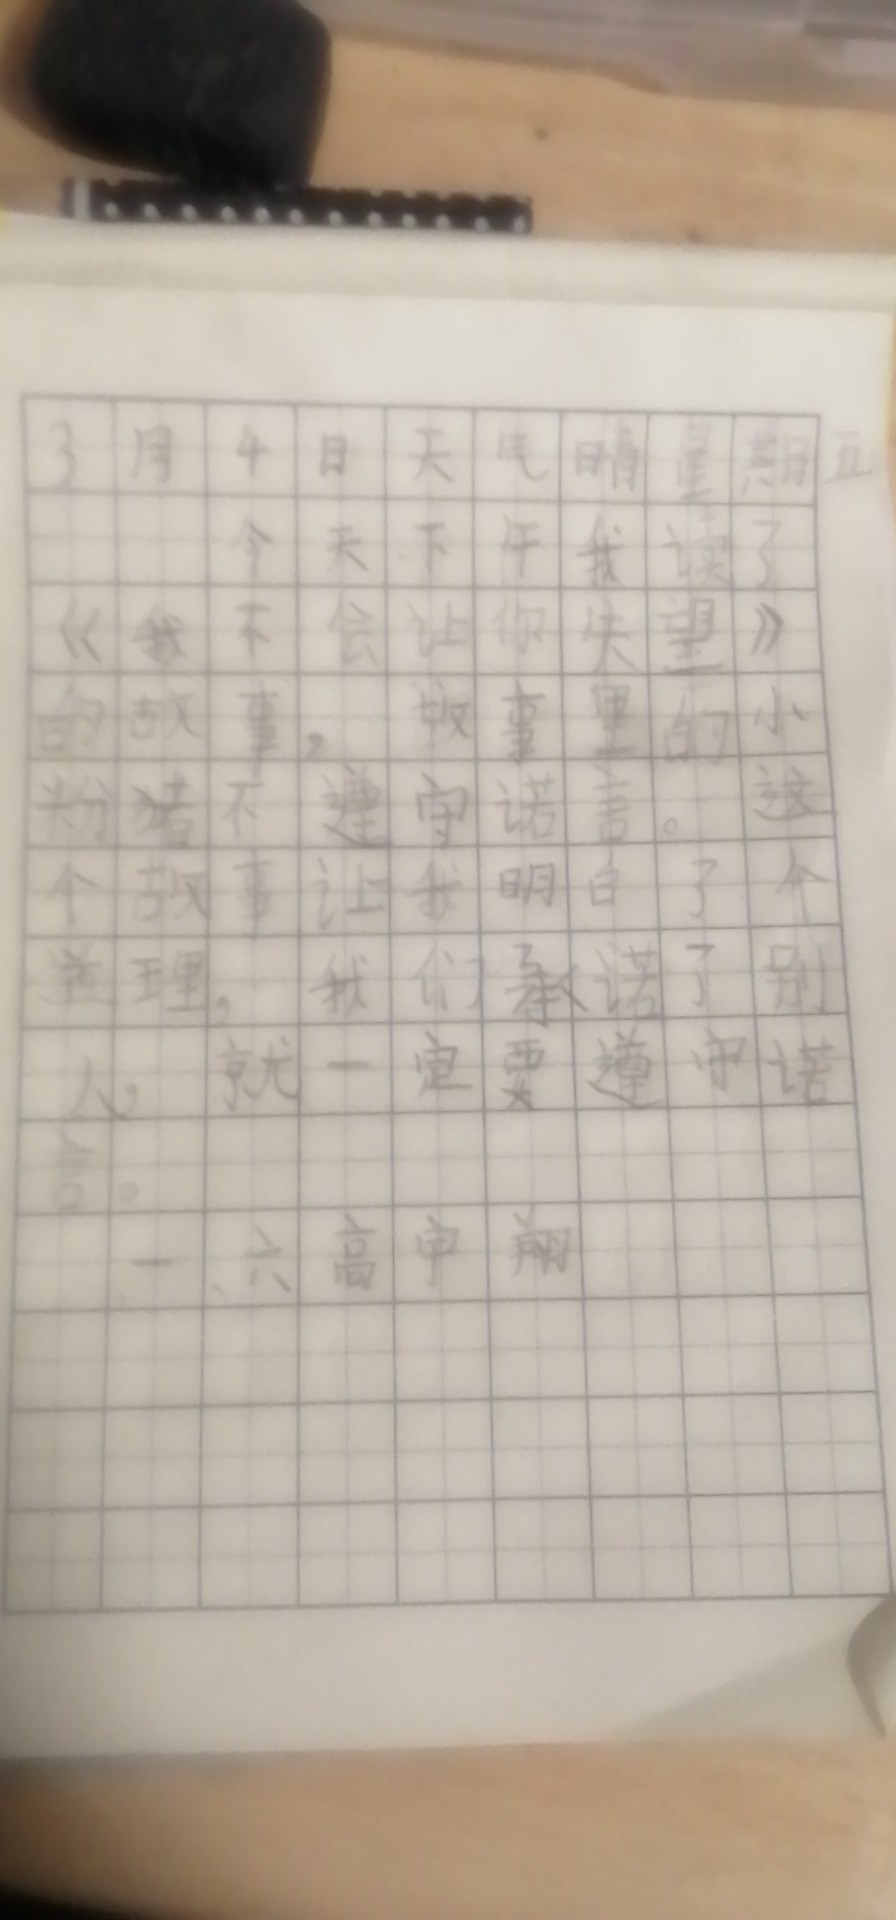 3月4日天气晴星期五
今天下午我读了
《我不会让你失望》
的故事,故事里的小
粉猪不遵守诺言。这
个故事让我明白了个
道理,我们承诺了别
人,就一定要遵守诺
言。
一、六高申翔